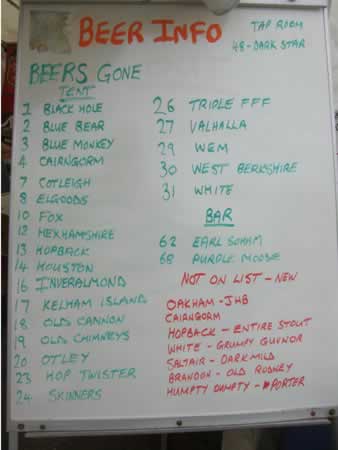 BEER INFO
TAP ROOM
48 - DARK STAR
BEERS GONE
TENT
1 BLACK HOLE
2 BLUE BEAR
3 BLUE MONKEY
4 CAIRNGORM
7 COTLEIGH
8 ELGOODS
10 FOX
12 HEXHAMSHIRE
13 HOPBACK
14 HOUSTON
16 INVERALMOND
17 KELHAM ISLAND
18 OLD CANNON
19 OLD CHIMNEYS
20 OTLEY
23 HOP TWISTER
24 SKINNERS
26 TRIPLE FFF
27 VALHALLA
29 WEM
30 WEST BERKSHIRE
31 WHITE
BAR
62 EARL SOHAM
68 PURPLE MOOSE
NOT ON LIST - NEW
OAKHAM - JHB
CAIRNGORM
HOPBACK - ENTIRE STOUT
WHITE - GRUMPY GUVNOR
SALTAIR - DARK MILD
BRANDON - OLD RODNEY
HUMPTY DUMPTY - PORTER